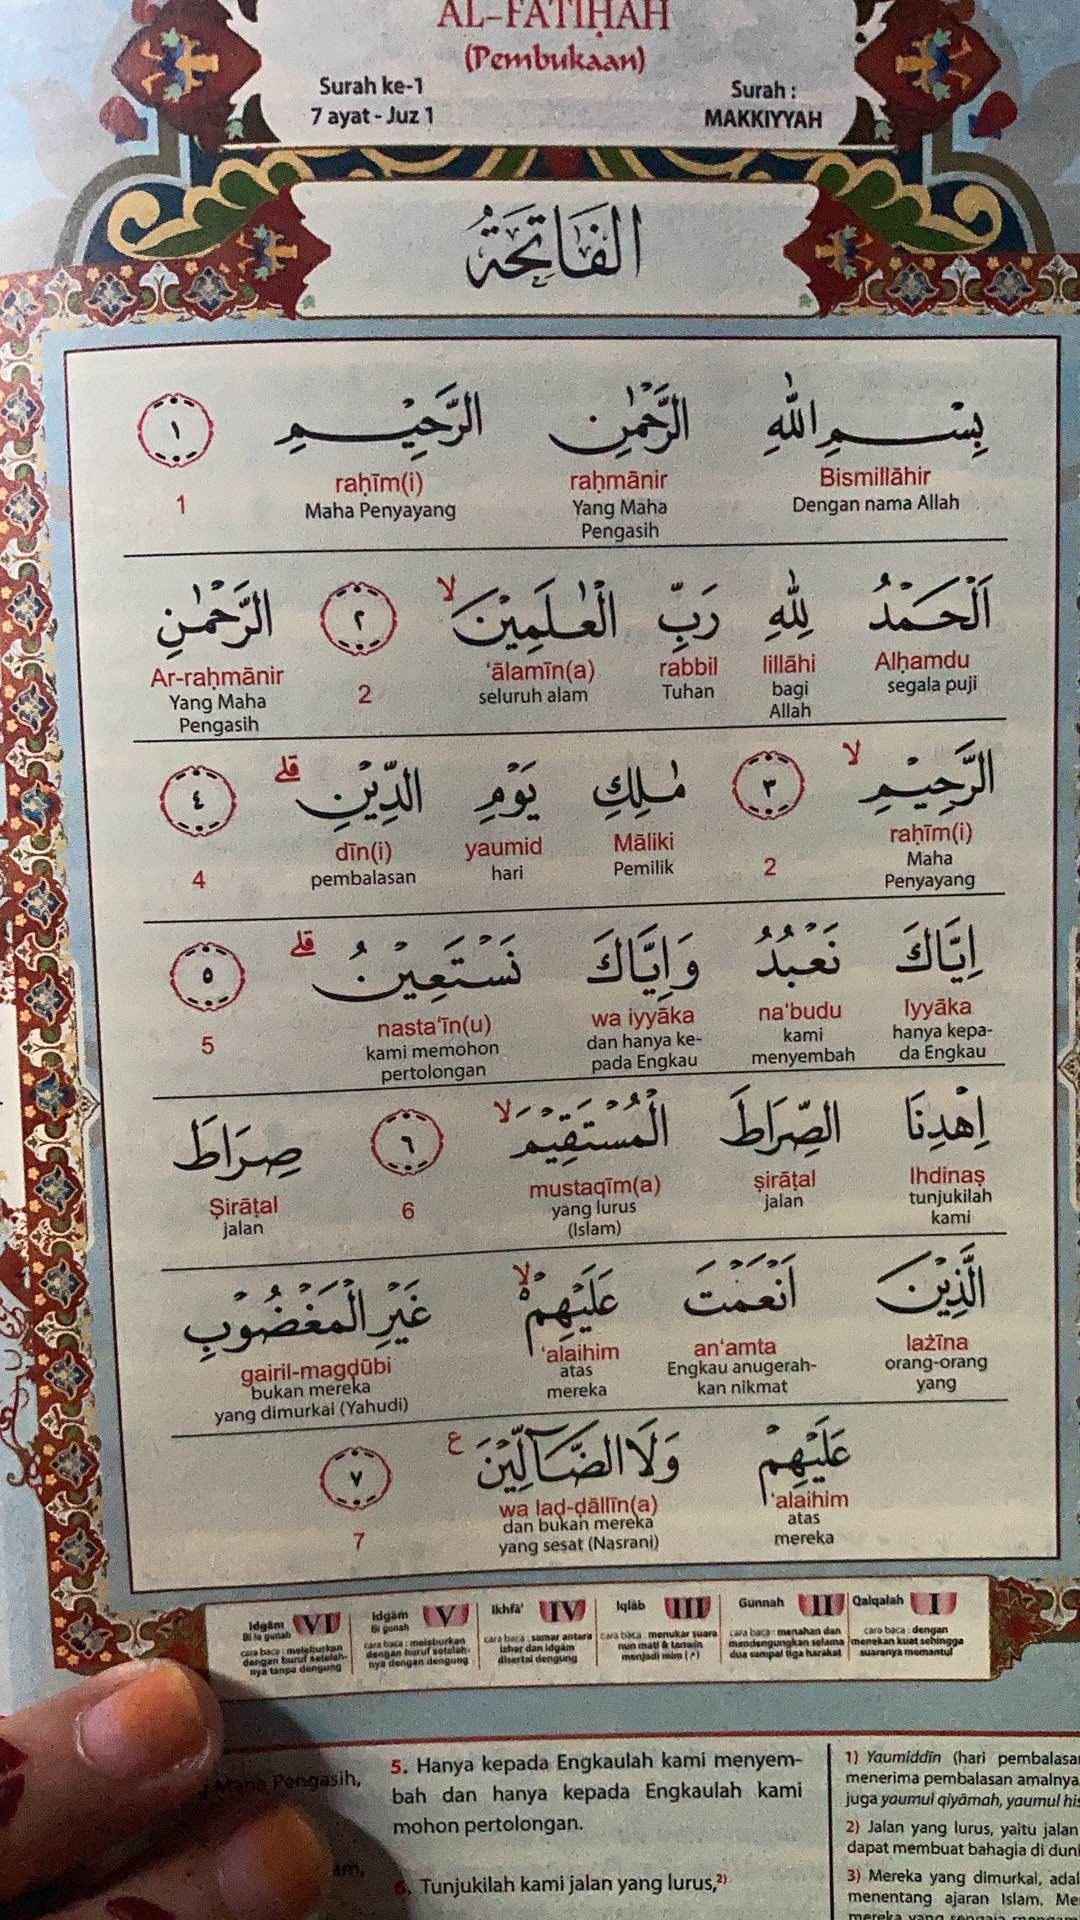 AL-FATIḤAH
(Pembukaan)
Surah ke-1
7 ayat - Juz 1
Surah :
MAKKIYYAH
الفَاتِحَةُ
بِسْمِ اللّٰهِ الرَّحْمٰنِ الرَّحِيْمِ ١
Bismillāhir raḥmānir raḥīm(i) 1
Dengan nama Allah Yang Maha Pengasih Maha Penyayang
اَلْحَمْدُ لِلّٰهِ رَبِّ الْعٰلَمِيْنَۙ ٢ الرَّحْمٰنِ
Alḥamdu lillāhi rabbil ‘ālamīn(a) 2 Ar-raḥmānir
segala puji bagi Allah Tuhan seluruh alam Yang Maha Pengasih
الرَّحِيْمِۙ ٣ مٰلِكِ يَوْمِ الدِّيْنِۗ ٤
raḥīm(i) 2 Māliki yaumid dīn(i) 4
Maha Penyayang Pemilik hari pembalasan
اِيَّاكَ نَعْبُدُ وَاِيَّاكَ نَسْتَعِيْنُۗ ٥
Iyyāka na‘budu wa iyyāka nasta‘īn(u) 5
hanya kepa-da Engkau kami menyembah dan hanya ke-pada Engkau kami memohon pertolongan
اِهْدِنَا الصِّرَاطَ الْمُسْتَقِيْمَۙ ٦ صِرَاطَ
Ihdinaṣ ṣirāṭal mustaqīm(a) 6 Ṣirāṭal
tunjukilah kami jalan yang lurus (Islam) jalan
الَّذِيْنَ اَنْعَمْتَ عَلَيْهِمْۙ غَيْرِ الْمَغْضُوْبِ
lażīna an‘amta ‘alaihim gairil-magḍūbi
orang-orang yang Engkau anugerah-kan nikmat atas mereka bukan mereka yang dimurkai (Yahudi)
عَلَيْهِمْ وَلَا الضَّاۤلِّيْنَ ع ٧
‘alaihim wa laḍ-ḍāllīn(a) 7
atas mereka dan bukan mereka yang sesat (Nasrani)
Qalqalah I
cara baca : dengan
menekan kuat sehingga
suaranya memantul
Gunnah II
cara baca : menahan dan
mendengungkan selama
dua sampai tiga harakat
Iqlāb III
cara baca : menukar suara
nun mati & tanwin
menjadi mim (م)
Ikhfā' IV
cara baca : samar antara
izhar dan idgām
disertai dengung
Idgām V
Bi gunah
cara baca : meleburkan
dengan huruf setelah-
nya dengan dengung
Idgām VI
Bi la gunah
cara baca : meleburkan
dengan huruf setelah-
nya tanpa dengung
Maha Pengasih,
5. Hanya kepada Engkaulah kami menyem-
bah dan hanya kepada Engkaulah kami
mohon pertolongan.
6. Tunjukilah kami jalan yang lurus,2)
1) Yaumiddīn (hari pembalasa
menerima pembalasan amalnya
juga yaumul qiyāmah, yaumul his
2) Jalan yang lurus, yaitu jalan
dapat membuat bahagia di duni
3) Mereka yang dimurkai, adal
menentang ajaran Islam. Me
mereka yang